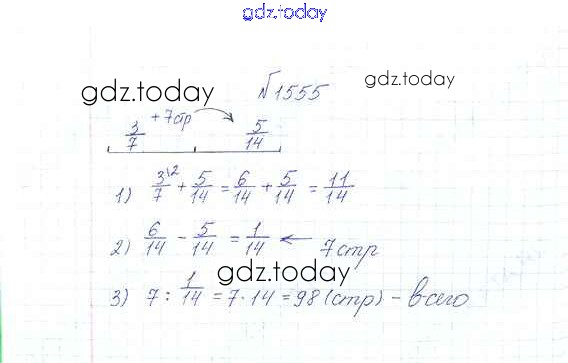 gdz.today
№1555
gdz.today
gdz.today
3/7 +7стр 5/14
1) 3/7 \2 + 5/14 = 6/14 + 5/14 = 11/14
2) 6/14 - 5/14 = 1/14 ← 7стр
gdz.today
3) 7 : 1/14 = 7·14 = 98 (стр) - всего